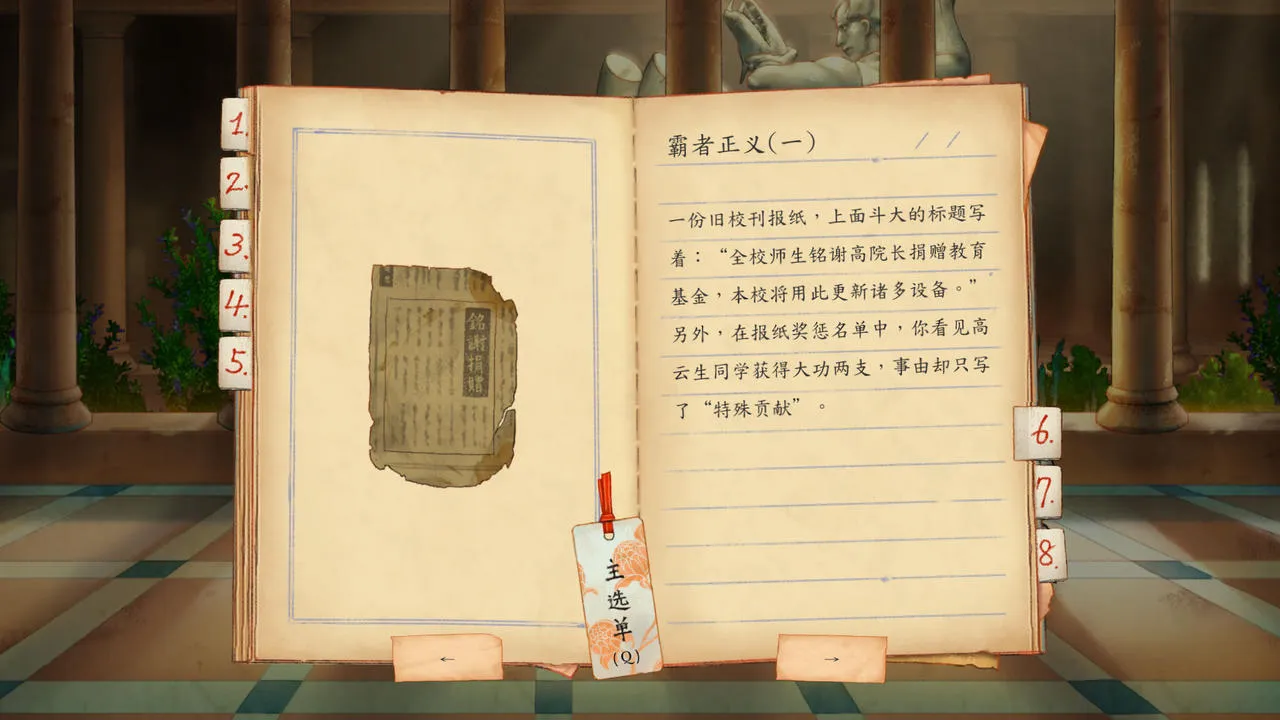 1.
2.
3.
4.
5.
銘謝捐贈
霸者正义(一)
一份旧校刊报纸，上面斗大的标题写
着：“全校师生铭谢高院长捐赠教育
基金，本校将用此更新诸多设备。”
另外，在报纸奖惩名单中，你看见高
云生同学获得大功两支，事由却只写
了“特殊贡献”。
6.
7.
8.
主选单
(Q)
←
→